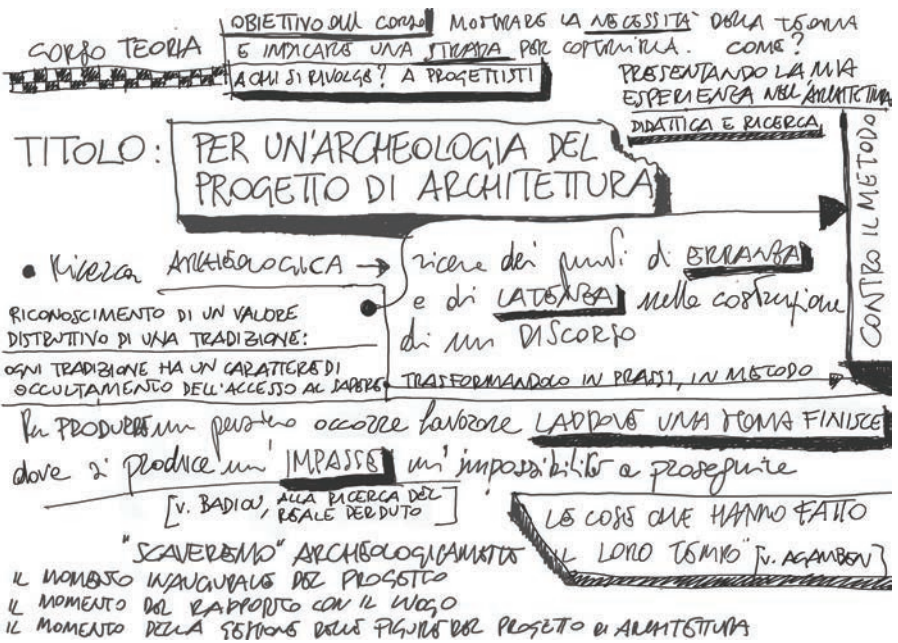 CORSO TEORIA
OBIETTIVO DEL CORSO MOSTRARE LA NECESSITÀ DELLA TEORIA
E INDICARE UNA STRADA PER COSTRUIRLA. COME?
A CHI SI RIVOLGE? A PROGETTISTI
PRESENTANDO LA MIA
ESPERIENZA NELL'ARCHITETTURA
DIDATTICA E RICERCA
TITOLO: PER UN'ARCHEOLOGIA DEL
PROGETTO DI ARCHITETTURA
CONTRO IL METODO
• Ricerca ARCHEOLOGICA → ricerca dei punti di ERRANZA
e di LATENZA nella costruzione
di un DISCORSO
RICONOSCIMENTO DI UN VALORE
DISTRUTTIVO DI UNA TRADIZIONE:
OGNI TRADIZIONE HA UN CARATTERE DI
OCCULTAMENTO DELL'ACCESSO AL SAPERE
TRASFORMANDOLO IN PRASSI, IN METODO
Per PRODURRE un pensiero occorre lavorare LADDOVE UNA FORMA FINISCE
dove si produce un' IMPASSE un'impossibilità a proseguire
[v. BADIOU, ALLA RICERCA DEL
REALE PERDUTO]
LE COSE CHE HANNO FATTO
IL LORO TEMPO" [v. AGAMBEN]
"SCAVEREMO" ARCHEOLOGICAMENTE
IL MOMENTO INAUGURALE DEL PROGETTO
IL MOMENTO DEL RAPPORTO CON IL LUOGO
IL MOMENTO DELLA GESTIONE DELLE FIGURE DEL PROGETTO DI ARCHITETTURA